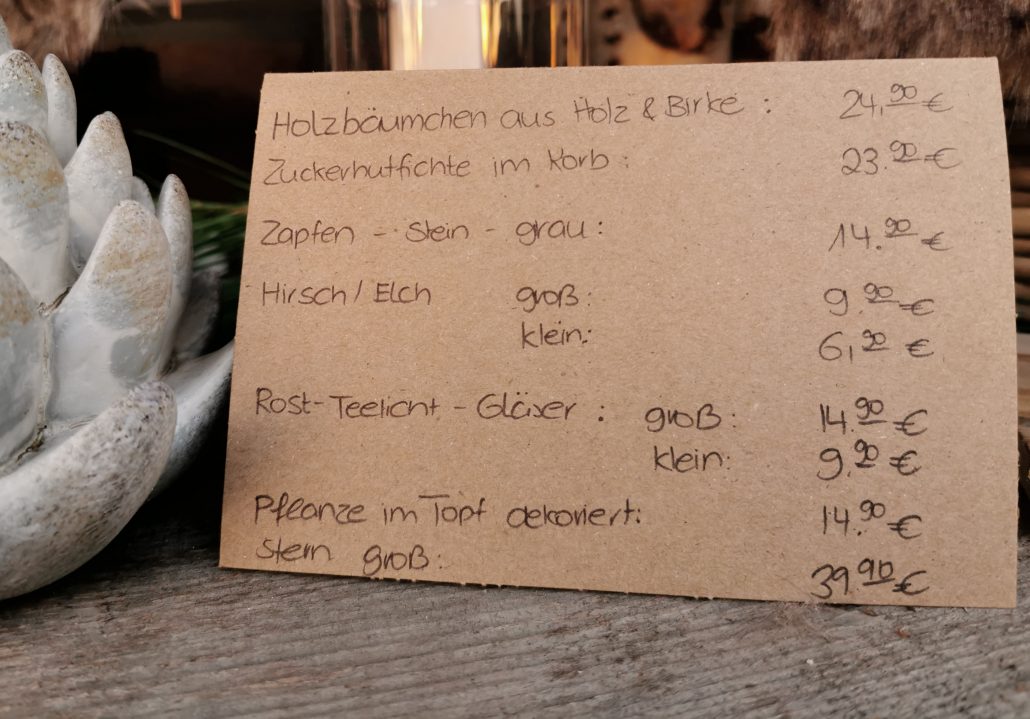 Holzbäumchen aus Holz & Birke : 24,90 €
Zuckerhutfichte im Korb : 23.90 €
Zapfen - Stein - grau : 14.90 €
Hirsch / Elch groß : 9.90 €
klein : 6,90 €
Rost-Teelicht - Gläser : groß : 14.90 €
klein : 9.90 €
Pflanze im Topf dekoriert : 14.90 €
Stern groß : 39.90 €